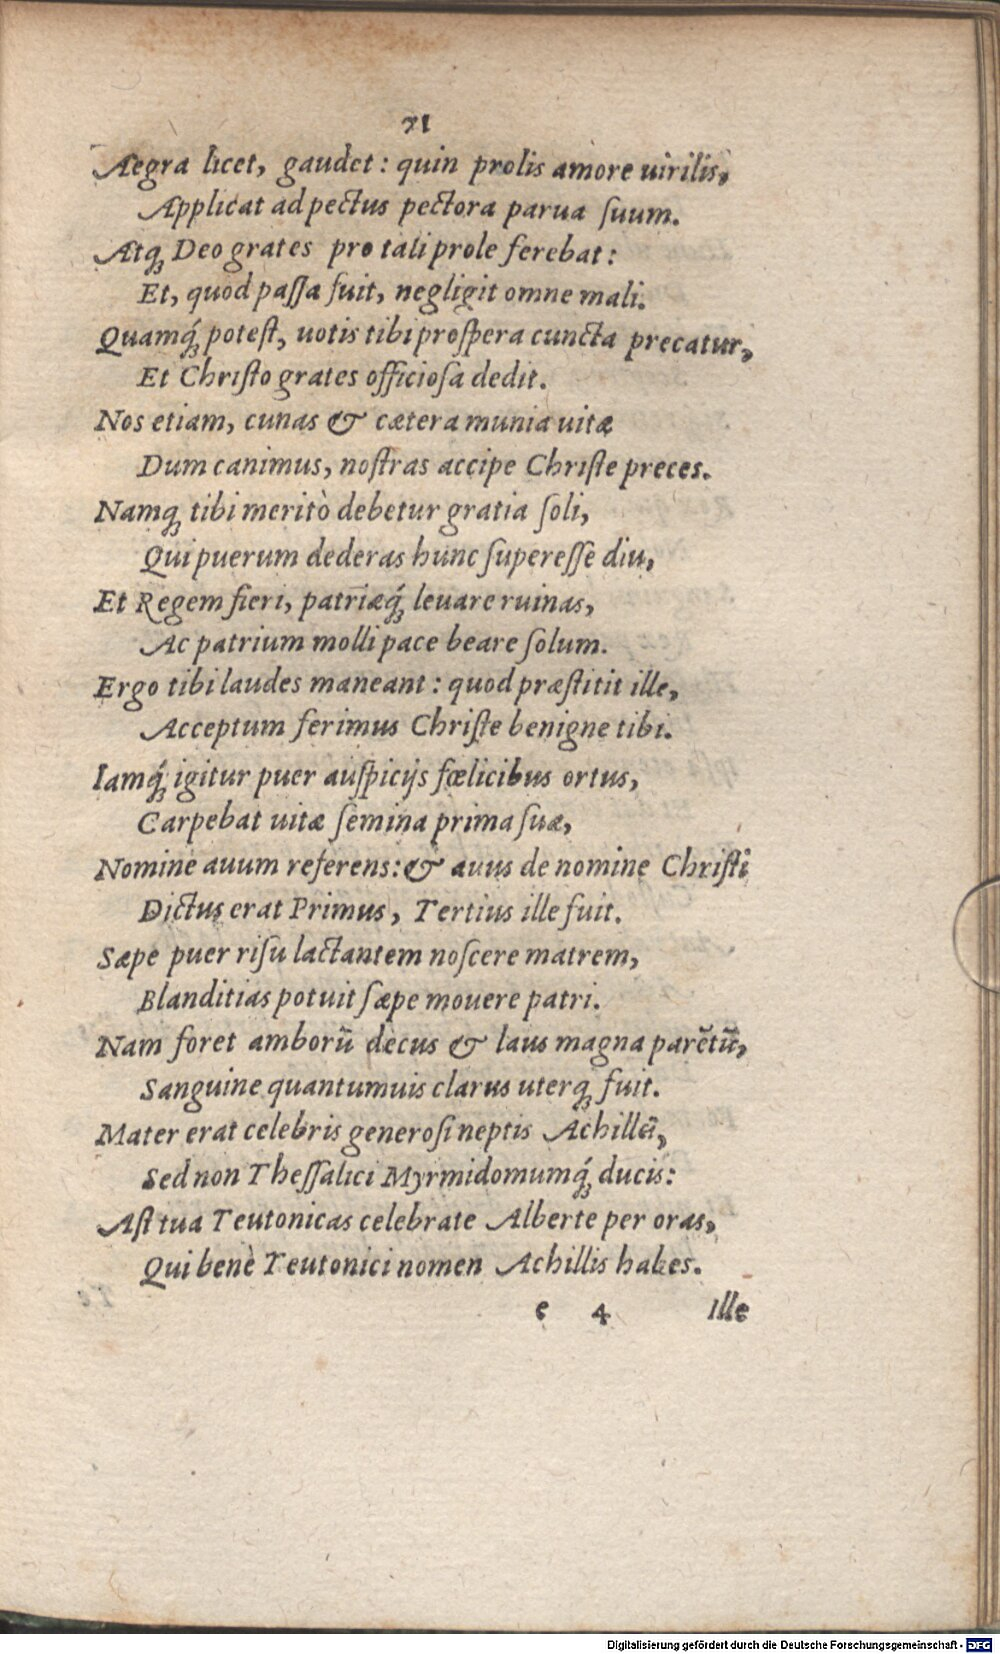 71
Aegra licet, gaudet: quin prolis amore uirilis,
Applicat ad pectus pectora parua suum.
Atq́; Deo grates pro tali prole ferebat:
Et, quod paſſa fuit, negligit omne mali.
Quamq́; poteſt, uotis tibi proſpera cuncta precatur,
Et Chriſto grates officioſa dedit.
Nos etiam, cunas & cætera munia uitæ
Dum canimus, noſtras accipe Chriſte preces.
Namq; tibi meritò debetur gratia ſoli,
Qui puerum dederas hunc ſupereſſe diu,
Et Regem fieri, patriæq́; leuare ruinas,
Ac patrium molli pace beare ſolum.
Ergo tibi laudes maneant: quod præſtitit ille,
Acceptum ferimus Chriſte benigne tibi.
Iamq́; igitur puer auſpicijs fœlicibus ortus,
Carpebat uitæ ſemina prima ſuæ,
Nomine auum referens: & auus de nomine Chriſti
Dictus erat Primus, Tertius ille fuit.
Sæpe puer riſu lactantem noſcere matrem,
Blanditias potuit ſæpe mouere patri.
Nam foret amborū decus & laus magna parētū,
Sanguine quantumuis clarus uterq; fuit.
Mater erat celebris generoſi neptis Achillis,
Sed non Theſſalici Myrmidomumq́; ducis:
Aſt tua Teutonicas celebrate Alberte per oras,
Qui benè Teutonici nomen Achillis habes.
e 4 Ille
Digitalisierung gefördert durch die Deutsche Forschungsgemeinschaft - DFG